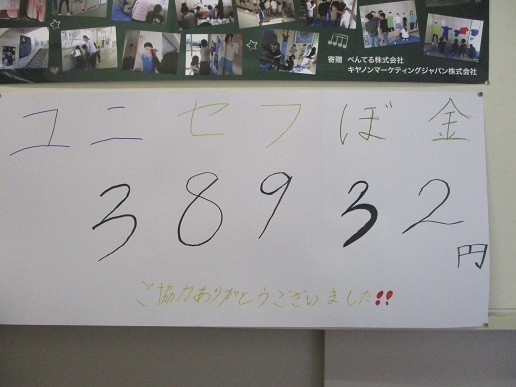 寄贈 ぺんてる株式会社
キヤノンマーケティングジャパン株式会社
ユニセフぼ金
38932円
ご協力ありがとうございました!!